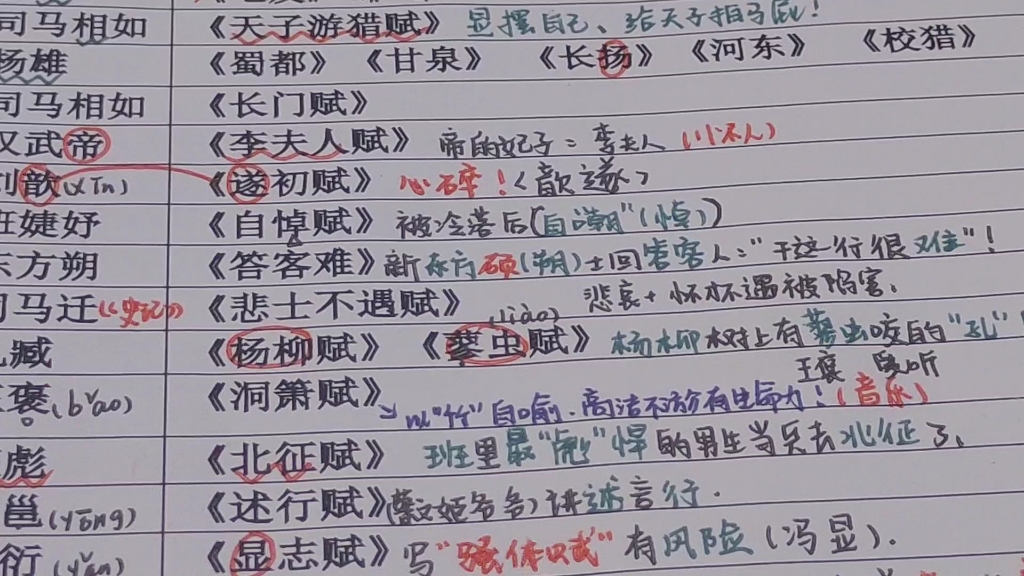 司马相如 《天子游猎赋》 显摆自己、给天子拍马屁!
杨雄 《蜀都》 《甘泉》 《长扬》 《河东》 《校猎》
司马相如 《长门赋》
汉武帝 《李夫人赋》 帝的妃子:李夫人
刘歆(xīn) 《遂初赋》 心碎!(歆遂)
班婕妤 《自悼赋》 被冷落后("自嘲"(悼))
东方朔 《答客难》 新东方硕(朔)士回答客人:"干这行很难"!
司马迁(《史记》) 《悲士不遇赋》 悲哀+怀才不遇被陷害.
孔臧 《杨柳赋》 《蓼虫赋》 (liǎo) 杨柳树上有蓼虫咬的"孔"
王褒(bāo) 《洞箫赋》 王褒
以"竹"自喻.高洁不放有生命力!(音乐)
彪 《北征赋》 班里最"彪"悍的男生当兵去北征了.
邕(yōng) 《述行赋》 讲述言行.
衍(yǎn) 《显志赋》 写"骚体赋"有风险(冯显).